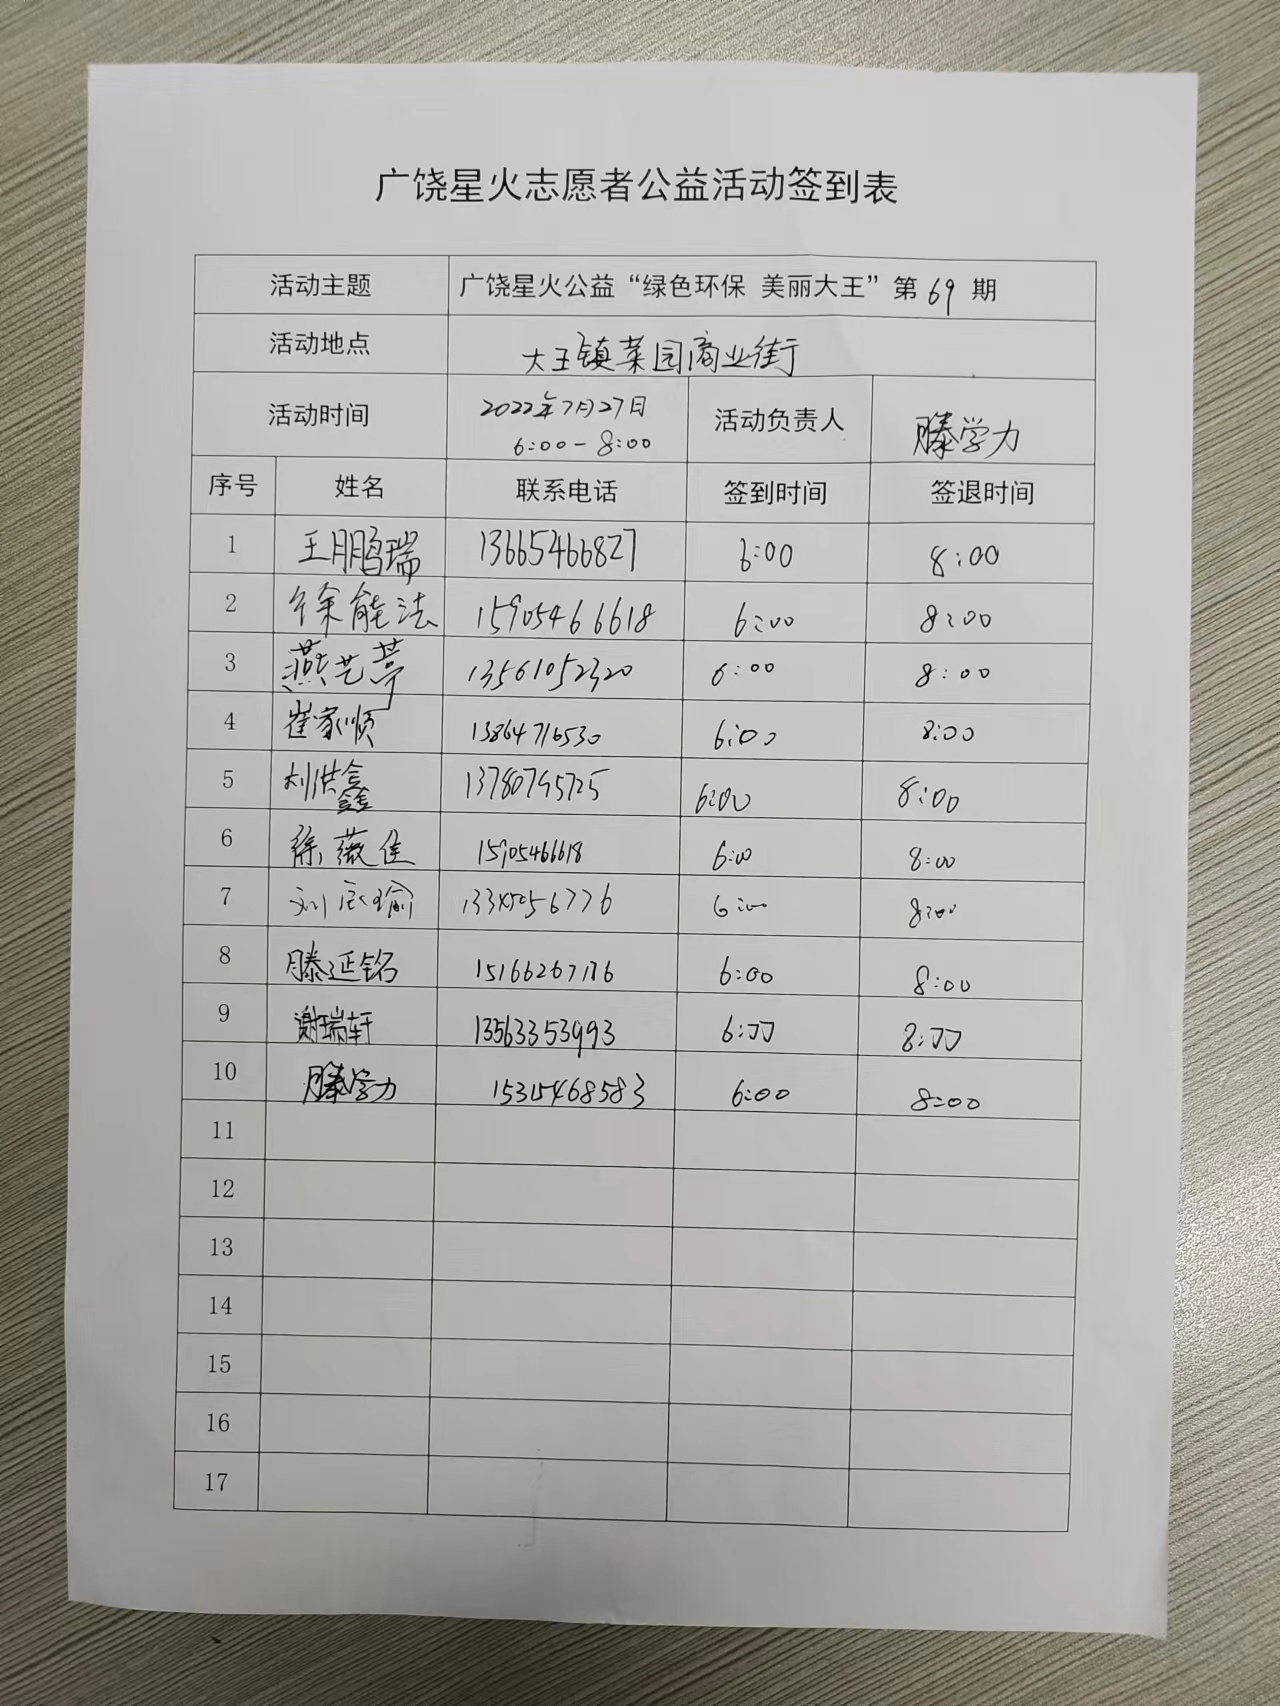 广饶星火志愿者公益活动签到表
活动主题 广饶星火公益“绿色环保 美丽大王”第69期
活动地点 大王镇菜园商业街
活动时间 2022年7月27日 6:00-8:00 活动负责人 滕学力
序号 姓名 联系电话 签到时间 签退时间
1 王鹏瑞 13665466827 6:00 8:00
2 徐能法 15905466618 6:00 8:00
3 燕艺葶 13561052320 6:00 8:00
4 崔家顺 13864716530 6:00 8:00
5 刘洪鑫 13780795725 6:00 8:00
6 徐薇佳 15905466618 6:00 8:00
7 6:00 8:00
8 滕延铭 15166267186 6:00 8:00
9 谢瑞轩 13563353993 6:00 8:00
10 滕学力 15315468583 6:00 8:00
11
12
13
14
15
16
17